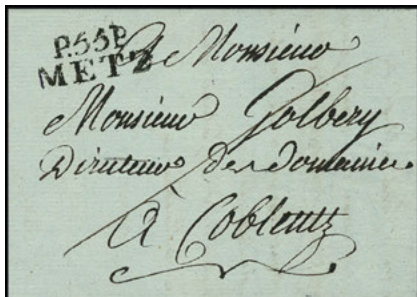 P.55.P.
METZ
A Monsieur
Monsieur Golbery
Directeur des domaines
à Coblentz